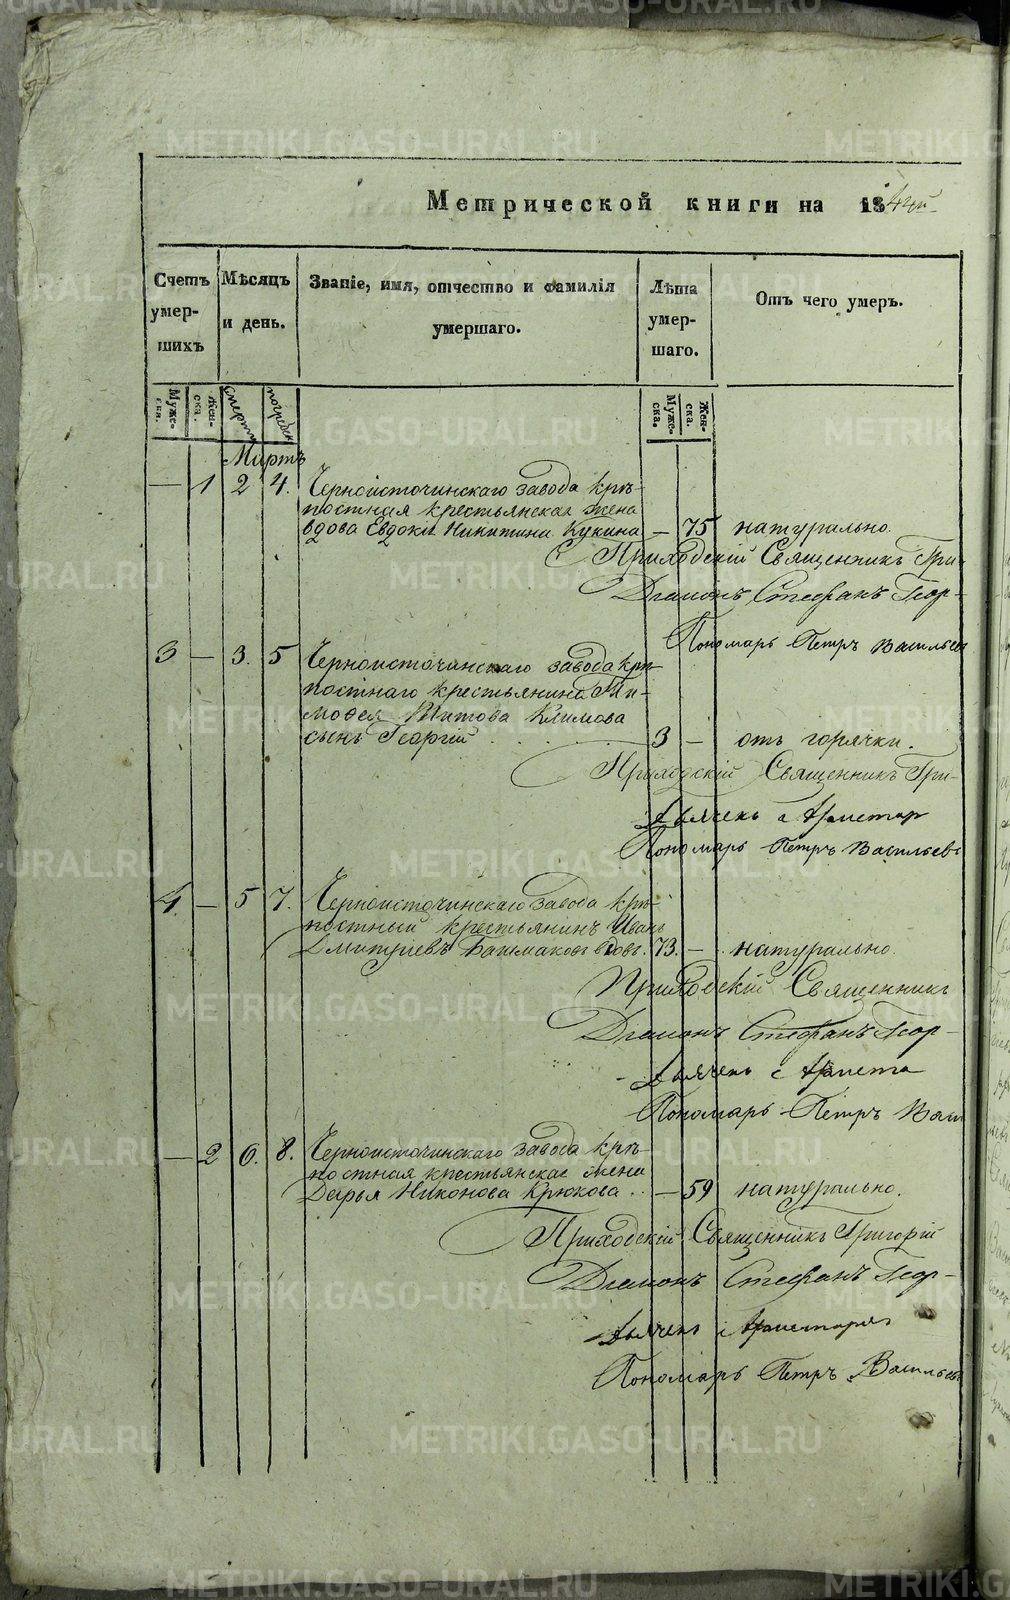 Метрической книги на 184
Счетъ умер-шихъ
Мѣсяцъ и день.
Званіе, имя, отчество и фамилія умершаго.
Лѣта умер-шаго.
Отъ чего умеръ.
Муже-ска.
Жен-ска.
смерти
погребен
Муже-ска.
Жен-ска.
Мартъ
— 1 2 4. Черноисточинскаго завода крѣ-
постная крестьянская жена
вдова Евдокія Никитина Кукина — 75 натурально.
Приходскій Священникъ Гри-
Діаконъ Стефанъ Геор-
Пономарь Петръ Васильевъ
3 — 3. 5 Черноисточинскаго завода крѣ-
постнаго крестьянина Ти-
мофея Титова Климова
сынъ Георгій 3 — отъ горячки.
Приходскій Священникъ Гри-
Дьячекъ
Пономарь Петръ Васильевъ
4. — 5 7. Черноисточинскаго завода крѣ-
постный крестьянинъ Иванъ
Дмитріевъ Башмаковъ вдовъ. 73. — натурально.
Приходскій Священникъ
Діаконъ Стефанъ Геор-
Дьячекъ
Пономарь Петръ Васи
— 2 6. 8. Черноисточинскаго завода крѣ-
постная крестьянская жена
Дарья Никонова Крюкова — 59 натурально.
Приходскій Священникъ Григорій
Діаконъ Стефанъ Геор-
Дьячекъ
Пономарь Петръ Васильевъ
METRIKI.GASO-URAL.RU